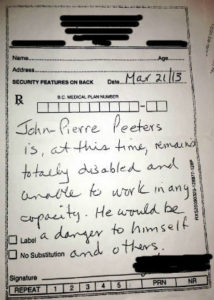 Name
Age
Address
SECURITY FEATURES ON BACK Date Mar 21/13
R B.C. MEDICAL PLAN NUMBER
John-Pierre Peeters
is, at this time, remains
totally disabled and
unable to work in any
capacity. He would be
a danger to himself
Label
and others.
No Substitution
Signature
REPEAT 1 2 3 4 5 PRN NR